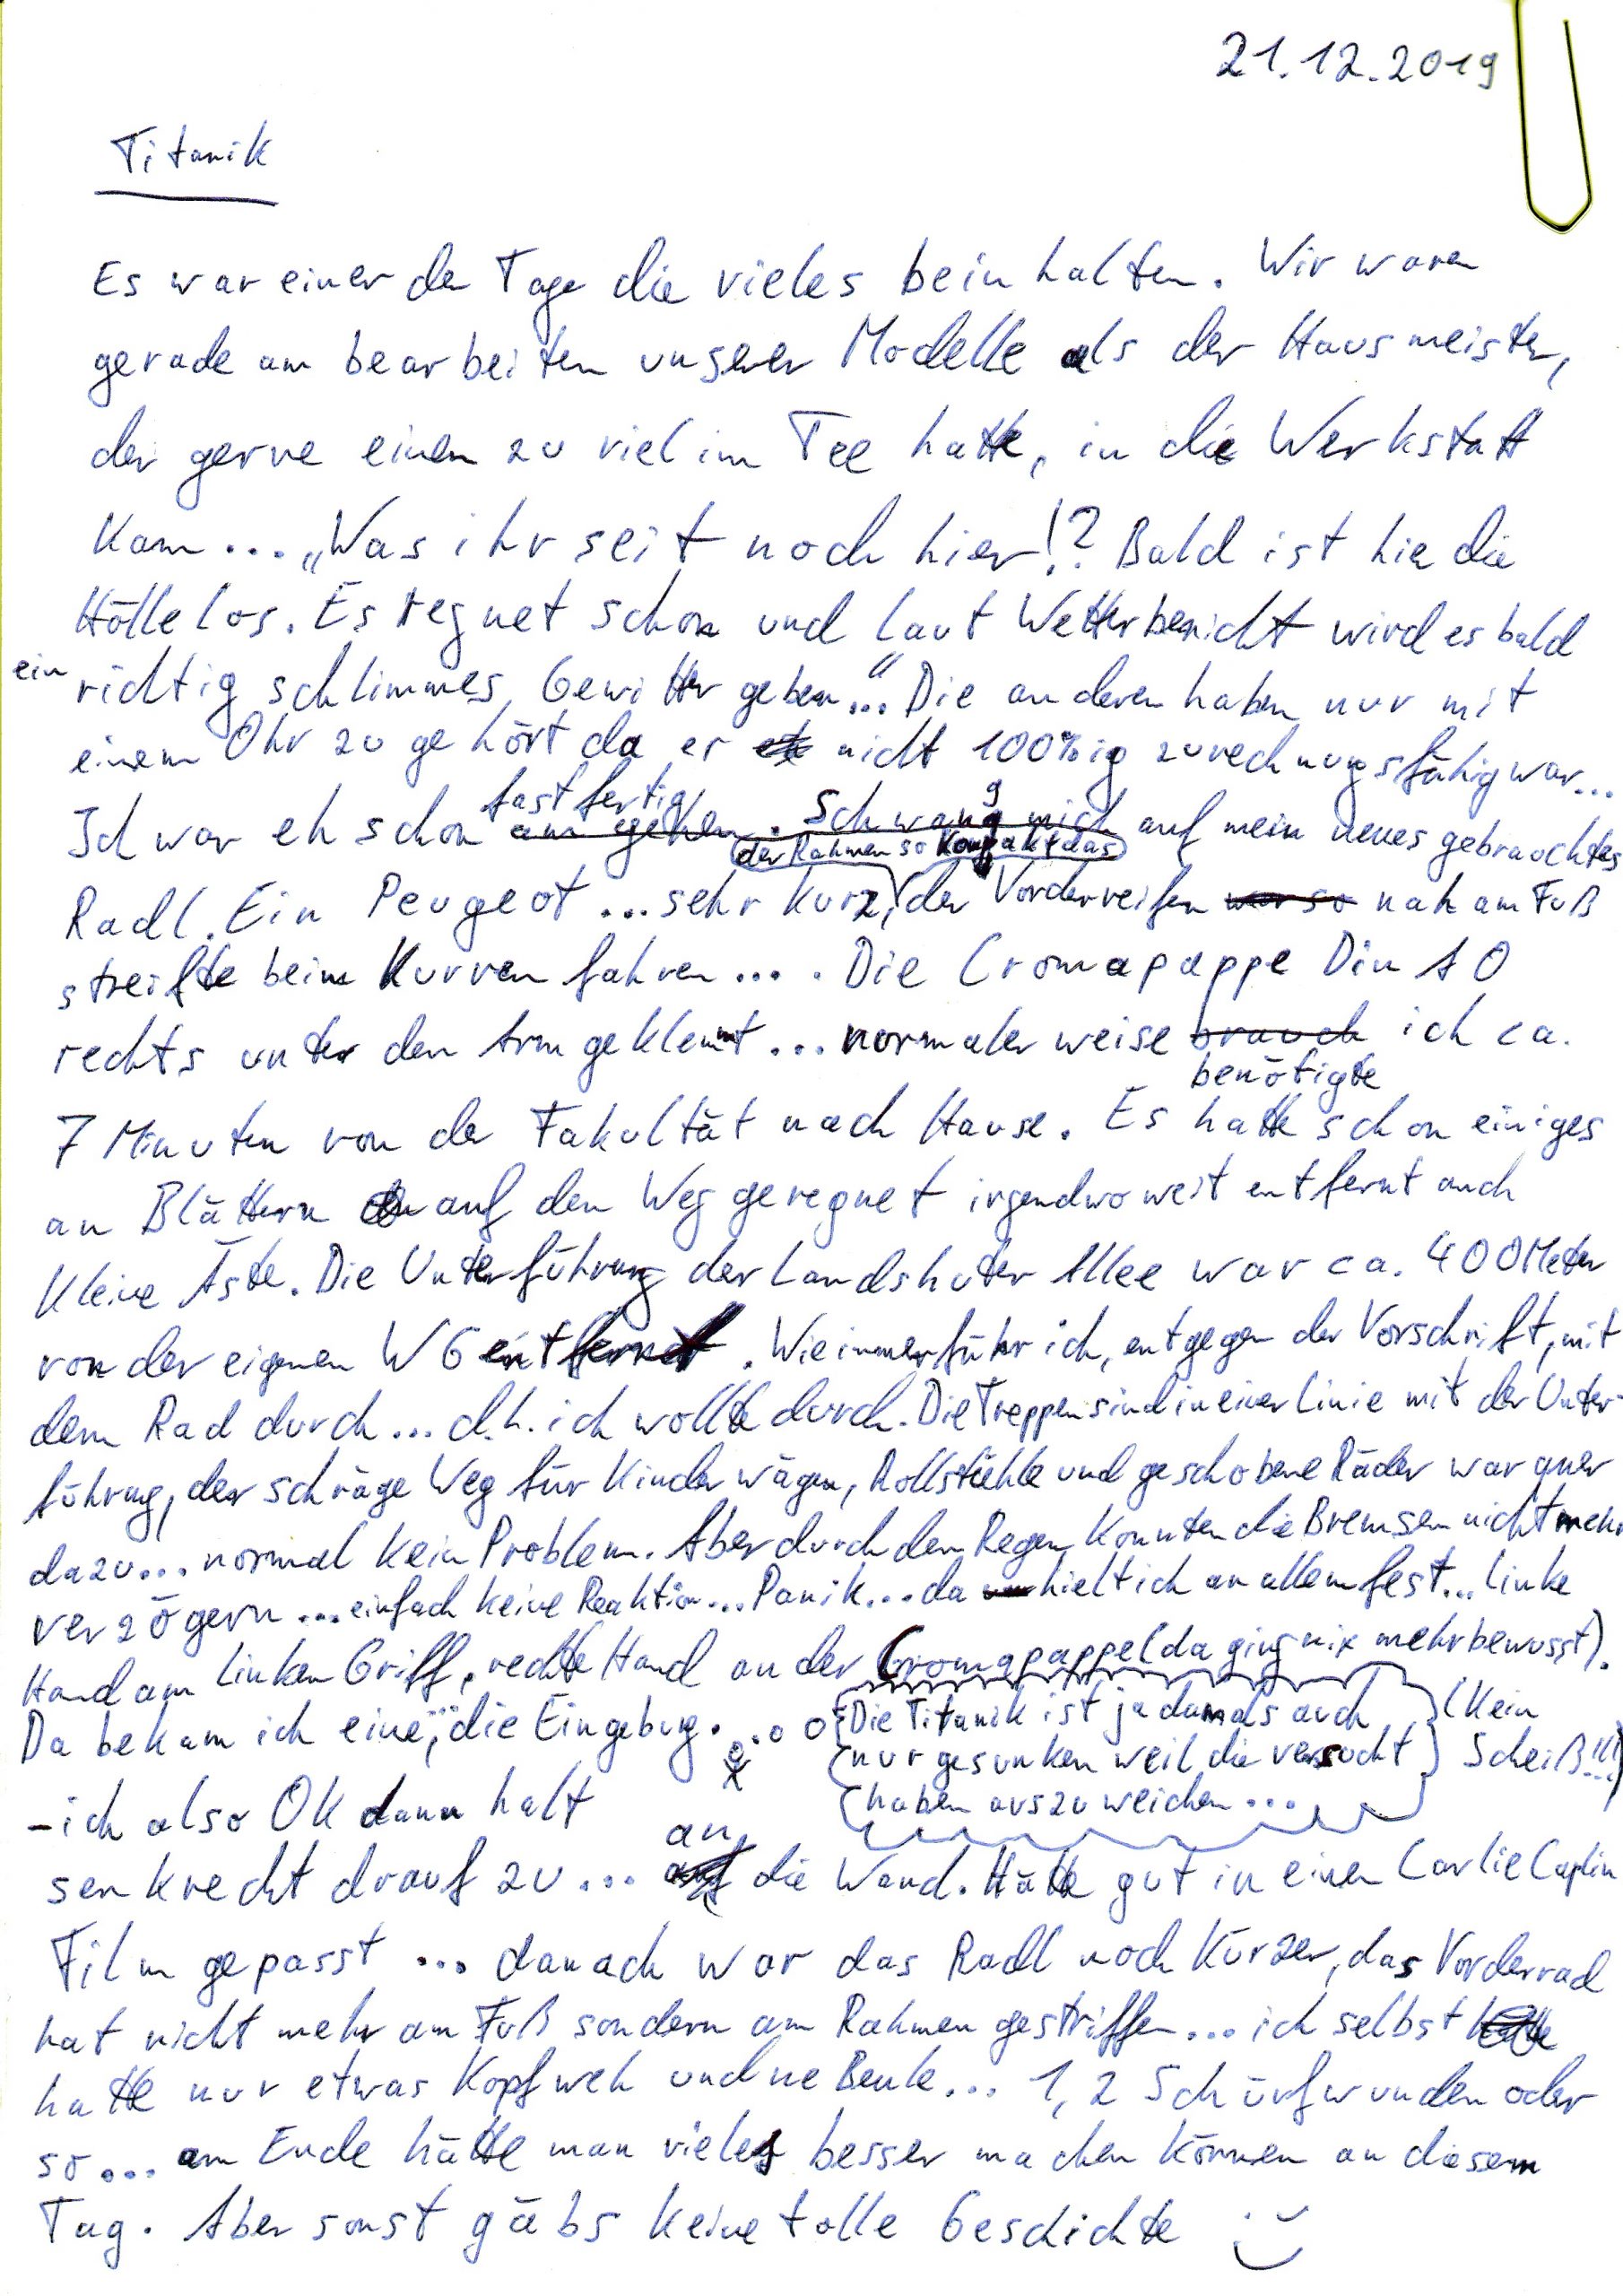 21.12.2019
Titanik
Es war einer der Tage die vieles beinhalten. Wir waren
gerade am bearbeiten unserer Modelle als der Hausmeister,
der gerne einen zu viel im Tee hatte, in die Werkstatt
kam... „Was ihr seit noch hier!? Bald ist hier die
Hölle los. Es regnet schon und laut Wetterbericht wird es bald
ein richtig schlimmes Gewitter geben..." Die anderen haben nur mit
einem Ohr zu gehört da er nicht 100%ig zurechnungsfähig war...
Ich war eh schon fast fertig
am gehen. Schwang mich auf mein neues gebrauchtes
der Rahmen so kompakt das
Radl. Ein Peugeot ... sehr kurz, der Vorderreifen war so nah am Fuß
streifte beim Kurven fahren.... Die Cromapappe Din A0
rechts unter den Arm geklemmt... normaler weise brauch ich ca.
benötigte
7 Minuten von der Fakultät nach Hause. Es hatte schon einiges
an Blättern auf den Weg geregnet irgendwo weit entfernt auch
kleine Äste. Die Unterführung der Landshuter Allee war ca. 400 Meter
von der eigenen WG entfernt. Wie immer fuhr ich, entgegen der Vorschrift, mit
dem Rad durch... d.h. ich wollte durch. Die Treppen sind in einer Linie mit der Unter-
führung, der schräge Weg für Kinderwägen, Rollstühle und geschobene Räder war quer
dazu... normal kein Problem. Aber durch den Regen konnten die Bremsen nicht mehr
verzögern ... einfach keine Reaktion... Panik... da hielt ich an allem fest... linke
Hand am linken Griff, rechte Hand an der Cromapappe (da ging nix mehr bewusst).
Da bekam ich eine, ... die Eingebung. . . o O Die Titanik ist ja damals auch (Kein
nur gesunken weil die versucht Scheiß!!!)
haben auszuweichen...
- ich also OK dann halt
an
senkrecht drauf zu... auf die Wand. Hätte gut in einen Carlie Caplin
Film gepasst ... danach war das Radl noch kürzer, das Vorderrad
hat nicht mehr am Fuß sondern am Rahmen gestriffen... ich selbst hatte
hatte nur etwas Kopfweh und ne Beule... 1, 2 Schürfwunden oder
so... am Ende hätte man vieles besser machen können an diesem
Tag. Aber sonst gäbs keine tolle Geschichte :)